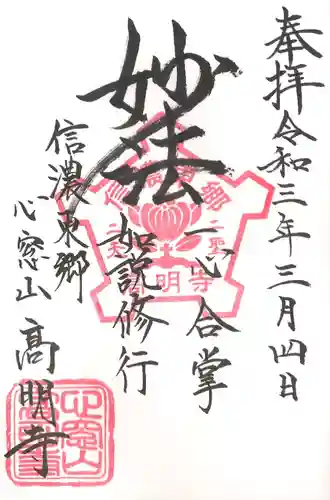 奉拝 令和三年三月四日
妙法
一心合掌
如説修行
信濃東郷
心窓山
髙明寺